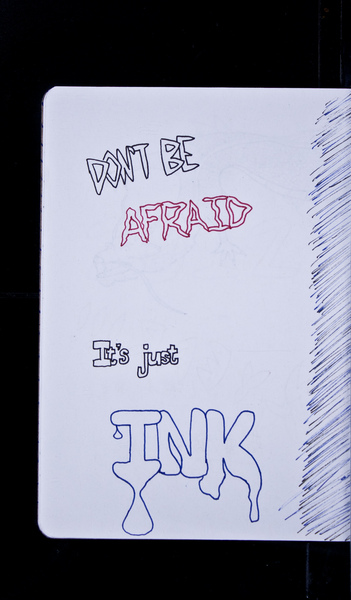 DON'T BE
AFRAID
It's just
INK